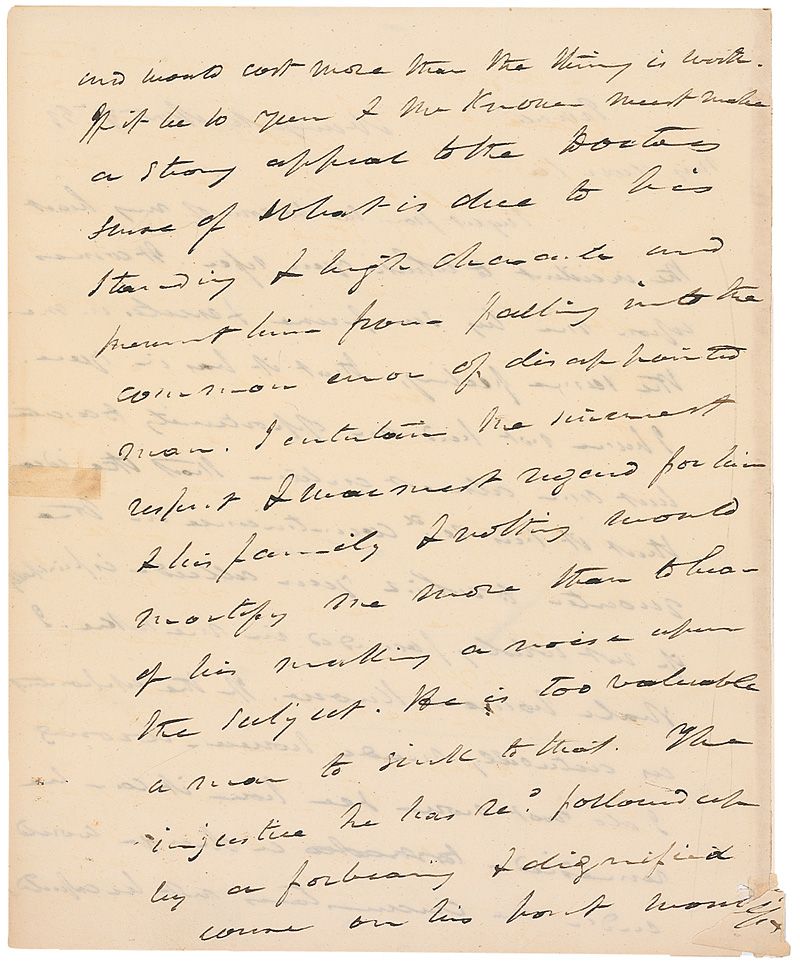 and would cost more than the thing is worth.
If it be so you & Mr Knower must make
a strong appeal to the Doctors
sense of what is due to his
standing & high character and
prevent him from falling into the
common error of disappointed
man. I entertain the sincerest
respect & warmest regard for him
& his family & nothing would
mortify me more than to hear
of his making a noise upon
the subject. He is too valuable
a man to sink to that. The
injustice he has recd followed up
by a forbearing & dignified
course on his part would